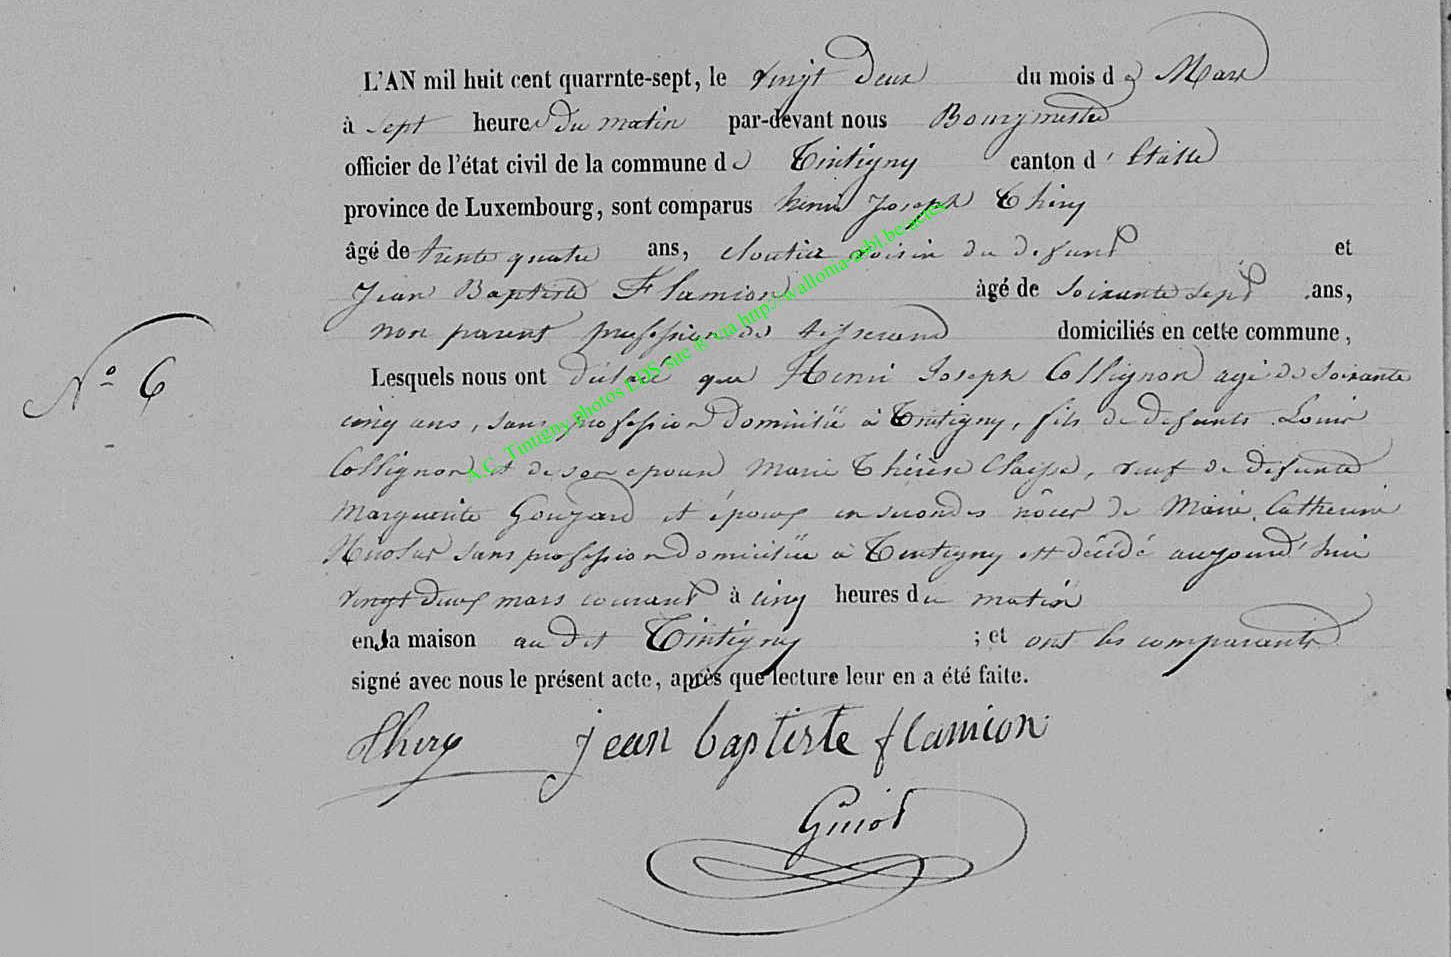 L'AN mil huit cent quarrnte-sept, le vingt deux du mois de Mars
à sept heures du matin par-devant nous Bourgmestre
officier de l'état civil de la commune de Tintigny canton d'Etalle
province de Luxembourg, sont comparus henri Joseph Thiry
âgé de trente quatre ans, cloutier voisin du defunt et
Jean Baptiste Flamion âgé de soixante sept ans,
non parent profession de tisserand domiciliés en cette commune,
N° 6
Lesquels nous ont déclaré que Henri Joseph Collignon agé de soixante
cinq ans, sans profession domicilié à Tintigny, fils de defunts Louis
Collignon et de son epouse Marie Thérèse Claisse, veuf de defunte
Marguerite Goujard et époux en secondes nôces de Marie Catherine
sans profession domiciliée à Tintigny est décédé aujourd'hui
vingt deux mars courant à cinq heures du matin
en sa maison au dit Tintigny ; et ont les comparants
signé avec nous le présent acte, après que lecture leur en a été faite.
Thiry jean baptiste flamion
Guiot
A.C. Tintigny photos LDS site & via http://wallonia-asbl.be/actes